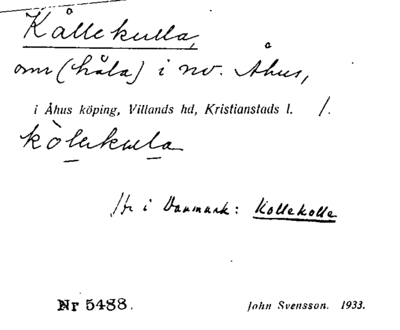 Kållekulla,
om (håla) i nv. Åhus,
i Åhus köping, Villands hd, Kristianstads l. /.
kòlekula
i Danmark: Kollekolle
Nr 5488. John Svensson. 1933.